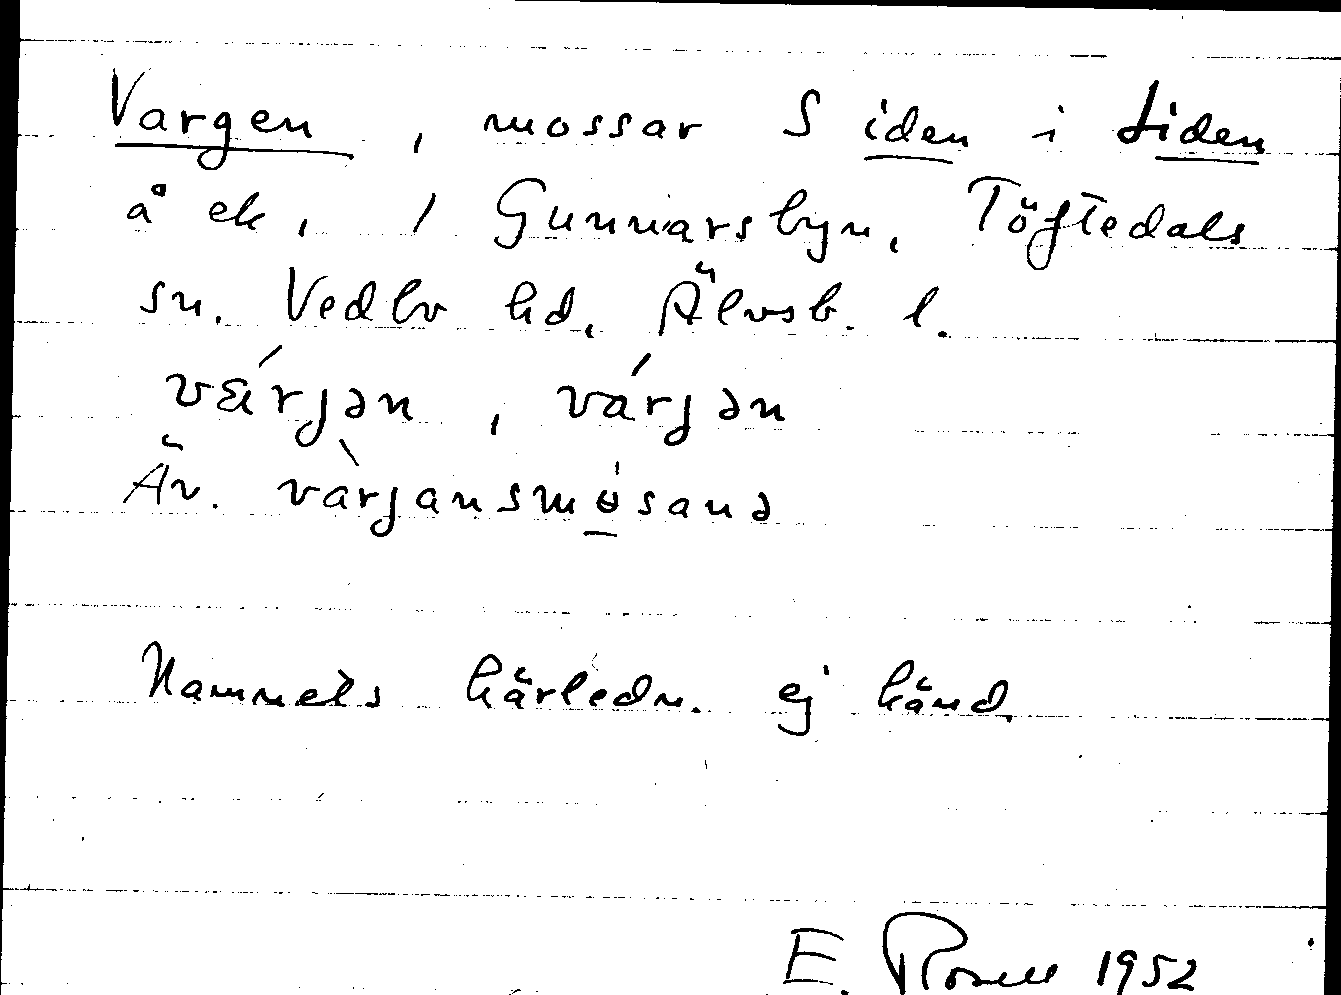 Vargen, mossar S iden i tiden
å ek, 1 Gunnarsbyn, Töftedals
sn. Vedbo hd, Älvsb. l.
vǽrjən, várjən
Äv. vàrjansmɵ̲́sanə
Namnets härledn. ej känd.
E. Rosell 1952